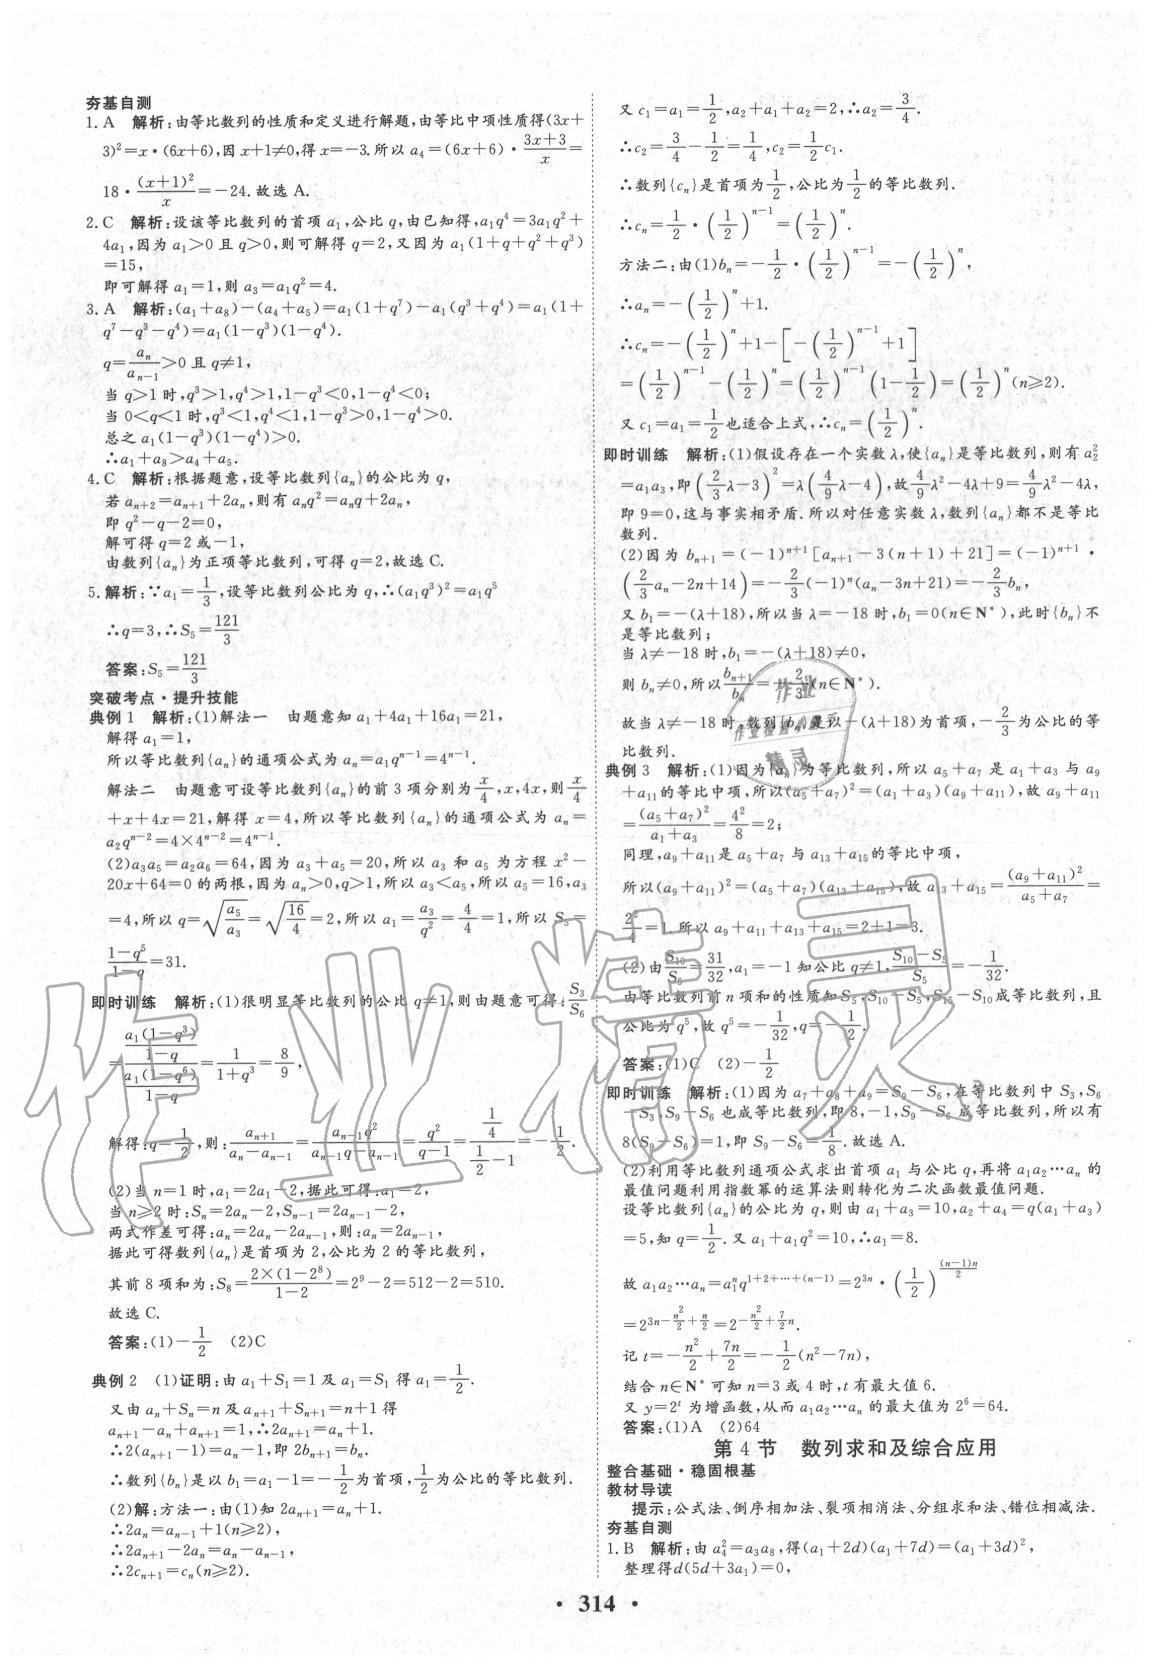 夯基自测
1. A 解析:由等比数列的性质和定义进行解题,由等比中项性质得(3x+
3)²=x·(6x+6),因 x+1≠0,得 x=-3.所以 a₄=(6x+6)·(3x+3)/x=
18·(x+1)²/x=-24.故选 A.
2. C 解析:设该等比数列的首项 a₁,公比 q,由已知得,a₁q⁴=3a₁q²+
4a₁,因为 a₁>0 且 q>0,则可解得 q=2,又因为 a₁(1+q+q²+q³)
=15,
即可解得 a₁=1,则 a₃=a₁q²=4.
3. A 解析:(a₁+a₈)-(a₄+a₅)=a₁(1+q⁷)-a₁(q³+q⁴)=a₁(1+
q⁷-q³-q⁴)=a₁(1-q³)(1-q⁴).
q=aₙ/aₙ₋₁>0 且 q≠1,
当 q>1 时,q³>1,q⁴>1,1-q³<0,1-q⁴<0;
当 0<q<1 时,q³<1,q⁴<1,1-q³>0,1-q⁴>0.
总之 a₁(1-q³)(1-q⁴)>0.
∴a₁+a₈>a₄+a₅.
4. C 解析:根据题意,设等比数列{aₙ}的公比为 q,
若 aₙ₊₂=aₙ₊₁+2aₙ,则有 aₙq²=aₙq+2aₙ,
即 q²-q-2=0,
解可得 q=2 或-1,
由数列{aₙ}为正项等比数列,可得 q=2,故选 C.
5. 解析:∵a₁=1/3,设等比数列公比为 q,∴(a₁q³)²=a₁q⁵
∴q=3,∴S₅=121/3
答案:S₅=121/3
突破考点·提升技能
典例 1 解析:(1)解法一 由题意知 a₁+4a₁+16a₁=21,
解得 a₁=1,
所以等比数列{aₙ}的通项公式为 aₙ=a₁qⁿ⁻¹=4ⁿ⁻¹.
解法二 由题意可设等比数列{aₙ}的前 3 项分别为x/4,x,4x,则x/4
+x+4x=21,解得 x=4,所以等比数列{aₙ}的通项公式为 aₙ=
a₂qⁿ⁻²=4×4ⁿ⁻²=4ⁿ⁻¹.
(2)a₃a₅=a₂a₆=64,因为 a₃+a₅=20,所以 a₃ 和 a₅ 为方程 x²-
20x+64=0 的两根,因为 aₙ>0,q>1,所以 a₃<a₅,所以 a₅=16,a₃
=4,所以 q=√(a₅/a₃)=√(16/4)=2,所以 a₁=a₃/q²=4/4=1,所以 S₅=
(1-q⁵)/(1-q)=31.
即时训练 解析:(1)很明显等比数列的公比 q≠1,则由题意可得:S₃/S₆
=[a₁(1-q³)/(1-q)]/[a₁(1-q⁶)/(1-q)]=1/(1+q³)=8/9,
解得:q=1/2,则:aₙ₊₁/(aₙ-aₙ₋₁)=aₙ₋₁q²/(aₙ₋₁q-aₙ₋₁)=q²/(q-1)=(1/4)/(1/2-1)=-1/2.
(2)当 n=1 时,a₁=2a₁-2,据此可得:a₁=2,
当 n≥2 时:Sₙ=2aₙ-2,Sₙ₋₁=2aₙ₋₁-2,
两式作差可得:aₙ=2aₙ-2aₙ₋₁,则:aₙ=2aₙ₋₁,
据此可得数列{aₙ}是首项为 2,公比为 2 的等比数列,
其前 8 项和为:S₈=2×(1-2⁸)/(1-2)=2⁹-2=512-2=510.
故选 C.
答案:(1)-1/2 (2)C
典例 2 (1)证明:由 a₁+S₁=1 及 a₁=S₁ 得 a₁=1/2.
又由 aₙ+Sₙ=n 及 aₙ₊₁+Sₙ₊₁=n+1 得
aₙ₊₁-aₙ+aₙ₊₁=1,∴2aₙ₊₁=aₙ+1.
∴2(aₙ₊₁-1)=aₙ-1,即 2bₙ₊₁=bₙ.
∴数列{bₙ}是以 b₁=a₁-1=-1/2为首项,1/2为公比的等比数列.
(2)解:方法一:由(1)知 2aₙ₊₁=aₙ+1.
∴2aₙ=aₙ₋₁+1(n≥2),
∴2aₙ₊₁-2aₙ=aₙ-aₙ₋₁,
∴2cₙ₊₁=cₙ(n≥2).
又 c₁=a₁=1/2,a₂+a₁+a₂=2,∴a₂=3/4.
∴c₂=3/4-1/2=1/4,c₂=1/2c₁.
∴数列{cₙ}是首项为1/2,公比为1/2的等比数列.
∴cₙ=1/2·(1/2)ⁿ⁻¹=(1/2)ⁿ.
方法二:由(1)bₙ=-1/2·(1/2)ⁿ⁻¹=-(1/2)ⁿ,
∴aₙ=-(1/2)ⁿ+1.
∴cₙ=-(1/2)ⁿ+1-[-(1/2)ⁿ⁻¹+1]
=(1/2)ⁿ⁻¹-(1/2)ⁿ=(1/2)ⁿ⁻¹(1-1/2)=(1/2)ⁿ(n≥2).
又 c₁=a₁=1/2也适合上式,∴cₙ=(1/2)ⁿ.
即时训练 解析:(1)假设存在一个实数 λ,使{aₙ}是等比数列,则有 a₂²
=a₁a₃,即(2/3λ-3)²=λ(4/9λ-4),故4/9λ²-4λ+9=4/9λ²-4λ,
即 9=0,这与事实相矛盾.所以对任意实数 λ,数列{aₙ}都不是等比
数列.
(2)因为 bₙ₊₁=(-1)ⁿ⁺¹[aₙ₊₁-3(n+1)+21]=(-1)ⁿ⁺¹·
(2/3aₙ-2n+14)=-2/3(-1)ⁿ(aₙ-3n+21)=-2/3bₙ,
又 b₁=-(λ+18),所以当 λ=-18 时,b₁=0(n∈N*),此时{bₙ}不
是等比数列;
当 λ≠-18 时,b₁=-(λ+18)≠0,
则 bₙ≠0,所以bₙ₊₁/bₙ=-2/3(n∈N*).
故当 λ≠-18 时,数列{bₙ}是以-(λ+18)为首项,-2/3为公比的等
比数列.
典例 3 解析:(1)因为{aₙ}为等比数列,所以 a₅+a₇ 是 a₁+a₃ 与 a₉
+a₁₁的等比中项,所以(a₅+a₇)²=(a₁+a₃)(a₉+a₁₁),故 a₉+a₁₁
=(a₅+a₇)²/(a₁+a₃)=4²/8=2;
同理,a₉+a₁₁是 a₅+a₇ 与 a₁₃+a₁₅的等比中项,
所以(a₉+a₁₁)²=(a₅+a₇)(a₁₃+a₁₅),故 a₁₃+a₁₅=(a₉+a₁₁)²/(a₅+a₇)=
2²/4=1.所以 a₉+a₁₁+a₁₃+a₁₅=2+1=3.
(2)由S₁₀/S₅=31/32,a₁=-1 知公比 q≠1,(S₁₀-S₅)/S₅=-1/32.
由等比数列前 n 项和的性质知 S₅,S₁₀-S₅,S₁₅-S₁₀成等比数列,且
公比为 q⁵,故 q⁵=-1/32,q=-1/2.
答案:(1)C (2)-1/2
即时训练 解析:(1)因为 a₇+a₈+a₉=S₉-S₆,在等比数列中 S₃,S₆
-S₃,S₉-S₆ 也成等比数列,即 8,-1,S₉-S₆ 成等比数列,所以有
8(S₉-S₆)=1,即 S₉-S₆=1/8.故选 A.
(2)利用等比数列通项公式求出首项 a₁ 与公比 q,再将 a₁a₂…aₙ 的
最值问题利用指数幂的运算法则转化为二次函数最值问题.
设等比数列{aₙ}的公比为 q,则由 a₁+a₃=10,a₂+a₄=q(a₁+a₃)
=5,知 q=1/2.又 a₁+a₁q²=10,∴a₁=8.
故 a₁a₂…aₙ=a₁ⁿq^(1+2+…+(n-1))=2³ⁿ·(1/2)^((n-1)n/2)
=2^(3n-n²/2+n/2)=2^(-n²/2+7/2n).
记 t=-n²/2+7n/2=-1/2(n²-7n),
结合 n∈N* 可知 n=3 或 4 时,t 有最大值 6.
又 y=2ᵗ 为增函数,从而 a₁a₂…aₙ 的最大值为 2⁶=64.
答案:(1)A (2)64
第 4 节 数列求和及综合应用
整合基础·稳固根基
教材导读
提示:公式法、倒序相加法、裂项相消法、分组求和法、错位相减法.
夯基自测
1. B 解析:由 a₄²=a₃a₈,得(a₁+2d)(a₁+7d)=(a₁+3d)²,
整理得d(5d+3a₁)=0,
· 314 ·
作业精灵